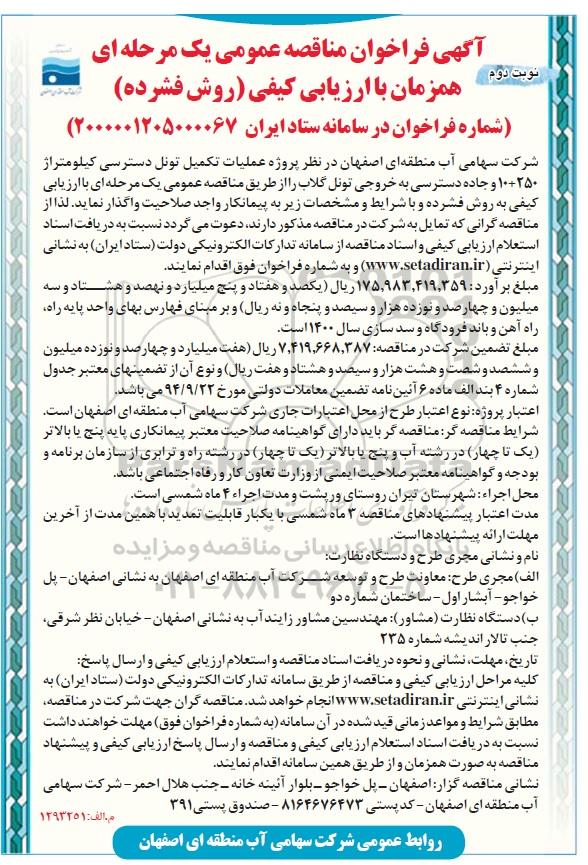 آگهی فراخوان مناقصه عمومی یک مرحله ای
نوبت دوم
همزمان با ارزیابی کیفی (روش فشرده)
(شماره فراخوان در سامانه ستاد ایران ۲۰۰۰۰۰۱۲۰۵۰۰۰۰۶۷)
شرکت سهامی آب منطقه‌ای اصفهان در نظر پروژه عملیات تکمیل تونل دسترسی کیلومتراژ
۲۵۰+۱۰ و جاده دسترسی به خروجی تونل گلاب را از طریق مناقصه عمومی یک مرحله ای با ارزیابی
کیفی به روش فشرده و با شرایط و مشخصات زیر به پیمانکار واجد صلاحیت واگذار نماید. لذا از
مناقصه گرانی که تمایل به شرکت در مناقصه مذکور دارند، دعوت می گردد نسبت به دریافت اسناد
استعلام ارزیابی کیفی و اسناد مناقصه از سامانه تدارکات الکترونیکی دولت (ستاد ایران) به نشانی
اینترنتی (www.setadiran.ir) و به شماره فراخوان فوق اقدام نمایند.
مبلغ برآورد: ۱۷۵,۹۸۳,۴۱۹,۳۵۹ ریال (یکصد و هفتاد و پنج میلیارد و نهصد و هشتاد و سه
میلیون و چهارصد و نوزده هزار و سیصد و پنجاه و نه ریال) و بر مبنای فهارس بهای واحد پایه راه،
راه آهن و باند فرودگاه و سد سازی سال ۱۴۰۰ است.
مبلغ تضمین شرکت در مناقصه: ۷,۴۱۹,۶۶۸,۳۸۷ ریال (هفت میلیارد و چهارصد و نوزده میلیون
و ششصد و شصت و هشت هزار و سیصد و هشتاد و هفت ریال) و نوع آن از تضمینهای معتبر جدول
شماره ۴ بند الف ماده ۶ آئین نامه تضمین معاملات دولتی مورخ ۹۴/۹/۲۲ می باشد.
اعتبار پروژه: نوع اعتبار طرح از محل اعتبارات جاری شرکت سهامی آب منطقه ای اصفهان است.
شرایط مناقصه گر: مناقصه گر باید دارای گواهینامه صلاحیت معتبر پیمانکاری پایه پنج یا بالاتر
(یک تا چهار) در رشته آب و پنج یا بالاتر (یک تا چهار) در رشته راه و ترابری از سازمان برنامه و
بودجه و گواهینامه معتبر صلاحیت ایمنی از وزارت تعاون کار و رفاه اجتماعی باشد.
محل اجراء: شهرستان تیران روستای ورپشت و مدت اجراء ۴ ماه شمسی است.
مدت اعتبار پیشنهادهای مناقصه ۳ ماه شمسی با یکبار قابلیت تمدید با همین مدت از آخرین
مهلت ارائه پیشنهادها است.
نام و نشانی مجری طرح و دستگاه نظارت:
الف) مجری طرح: معاونت طرح و توسعه شرکت آب منطقه ای اصفهان به نشانی اصفهان - پل
خواجو - آبشار اول - ساختمان شماره دو
ب) دستگاه نظارت (مشاور): مهندسین مشاور زایند آب به نشانی اصفهان - خیابان نظر شرقی،
جنب تالار اندیشه شماره ۲۳۵
تاریخ، مهلت، نشانی و نحوه دریافت اسناد مناقصه و استعلام ارزیابی کیفی و ارسال پاسخ:
کلیه مراحل ارزیابی کیفی و مناقصه از طریق سامانه تدارکات الکترونیکی دولت (ستاد ایران) به
نشانی اینترنتی www.setadiran.ir انجام خواهد شد. مناقصه گران جهت شرکت در مناقصه،
مطابق شرایط و مواعد زمانی قید شده در آن سامانه (به شماره فراخوان فوق) مهلت خواهند داشت
نسبت به دریافت اسناد استعلام ارزیابی کیفی و مناقصه و ارسال پاسخ ارزیابی کیفی و پیشنهاد
مناقصه به صورت همزمان و از طریق همین سامانه اقدام نمایند.
نشانی مناقصه گزار: اصفهان - پل خواجو - بلوار آئینه خانه - جنب هلال احمر - شرکت سهامی
آب منطقه ای اصفهان - کدپستی ۸۱۶۴۶۷۶۴۷۳ - صندوق پستی ۳۹۱
م.الف: ۱۲۹۳۲۵۱
روابط عمومی شرکت سهامی آب منطقه ای اصفهان
ParsNamadData
پایگاه اطلاع رسانی مناقصه و مزایده
۰۲۱-۸۸۳۴۹۶۷۰-۵